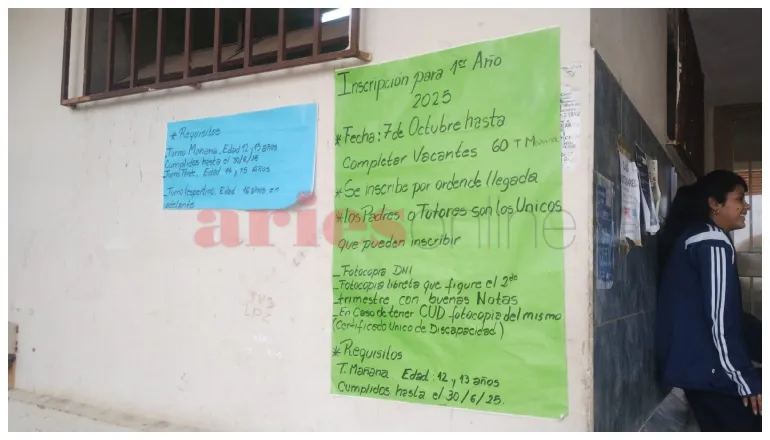 * Requisitos
_Turno Mañana_Edad 12 y 13 años
Cumplidos hasta el 30/6/25
_Turno Tarde_ Edad 14 y 15 años
_Turno Vespertino_ Edad 16 años en
adelante
Inscripción para 1er Año
2025
* Fecha: 7 de Octubre hasta
Completar Vacantes 60 T Mañana
* Se inscribe por orden de llegada
* los Padres o Tutores son los Unicos
que pueden inscribir
_ Fotocopia DNI
_Fotocopia libreta que figure el 2do
trimestre con buenas Notas
_En Caso de tener CUD fotocopia del mismo
(Certificado Unico de Discapacidad)
* Requisitos
T. Mañana Edad: 12 y 13 años
Cumplidos hasta el 30/6/25.
ariesonline